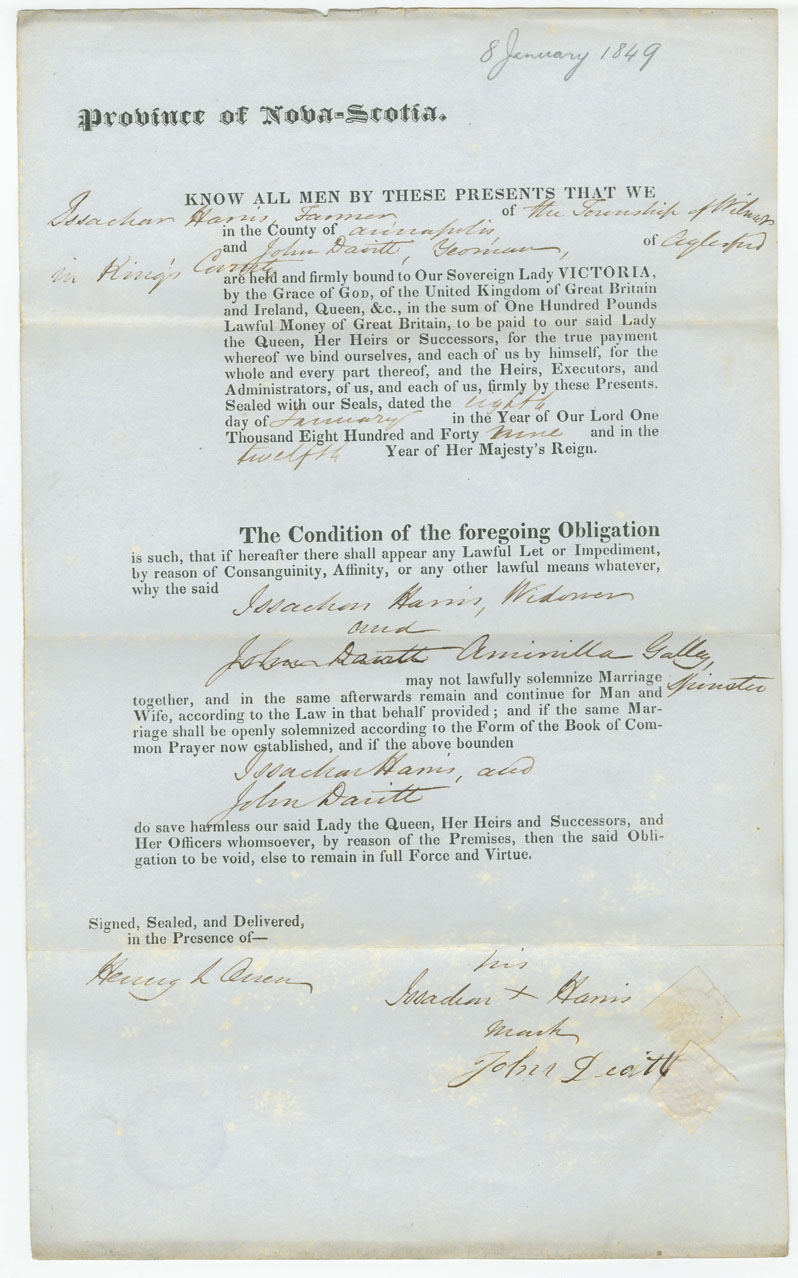 8 January 1849
Province of Nova-Scotia.
KNOW ALL MEN BY THESE PRESENTS THAT WE
Issachar Harris, Farmer, of the Township of Wilmot
in the County of annapolis,
and John Davitt, Yeoman, of Aylesford
in King's County
are held and firmly bound to Our Sovereign Lady VICTORIA,
by the Grace of GOD, of the United Kingdom of Great Britain
and Ireland, Queen, &c., in the sum of One Hundred Pounds
Lawful Money of Great Britain, to be paid to our said Lady
the Queen, Her Heirs or Successors, for the true payment
whereof we bind ourselves, and each of us by himself, for the
whole and every part thereof, and the Heirs, Executors, and
Administrators, of us, and each of us, firmly by these Presents.
Sealed with our Seals, dated the eighth
day of January in the Year of Our Lord One
Thousand Eight Hundred and Forty nine and in the
twelfth Year of Her Majesty's Reign.
The Condition of the foregoing Obligation
is such, that if hereafter there shall appear any Lawful Let or Impediment,
by reason of Consanguinity, Affinity, or any other lawful means whatever,
why the said
Issachar Harris, Widower
and
John Davitt Aminilla Galley,
may not lawfully solemnize Marriage Spinster
together, and in the same afterwards remain and continue for Man and
Wife, according to the Law in that behalf provided; and if the same Mar-
riage shall be openly solemnized according to the Form of the Book of Com-
mon Prayer now established, and if the above bounden
Issachar Harris, and
John Davitt
do save harmless our said Lady the Queen, Her Heirs and Successors, and
Her Officers whomsoever, by reason of the Premises, then the said Obli-
gation to be void, else to remain in full Force and Virtue.
Signed, Sealed, and Delivered,
in the Presence of—
Henry L Owen
his
Issachar + Harris
mark
John